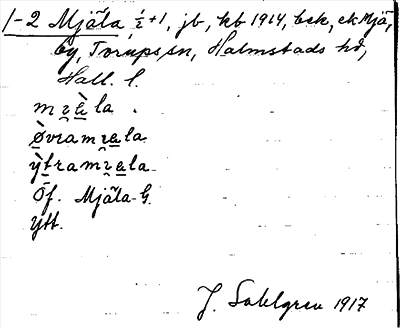 1-2 Mjäla, ½ +1, jb, kb 1914, bck, ek Mjä,
by, Torups sn, Halmstads hd,
Hall. l.
mɿɛ̀la.
ø̀vramɿɛla
ỳtramɿɛla
Öf. Mjäla G.
Ytt.
J. Sahlgren 1917